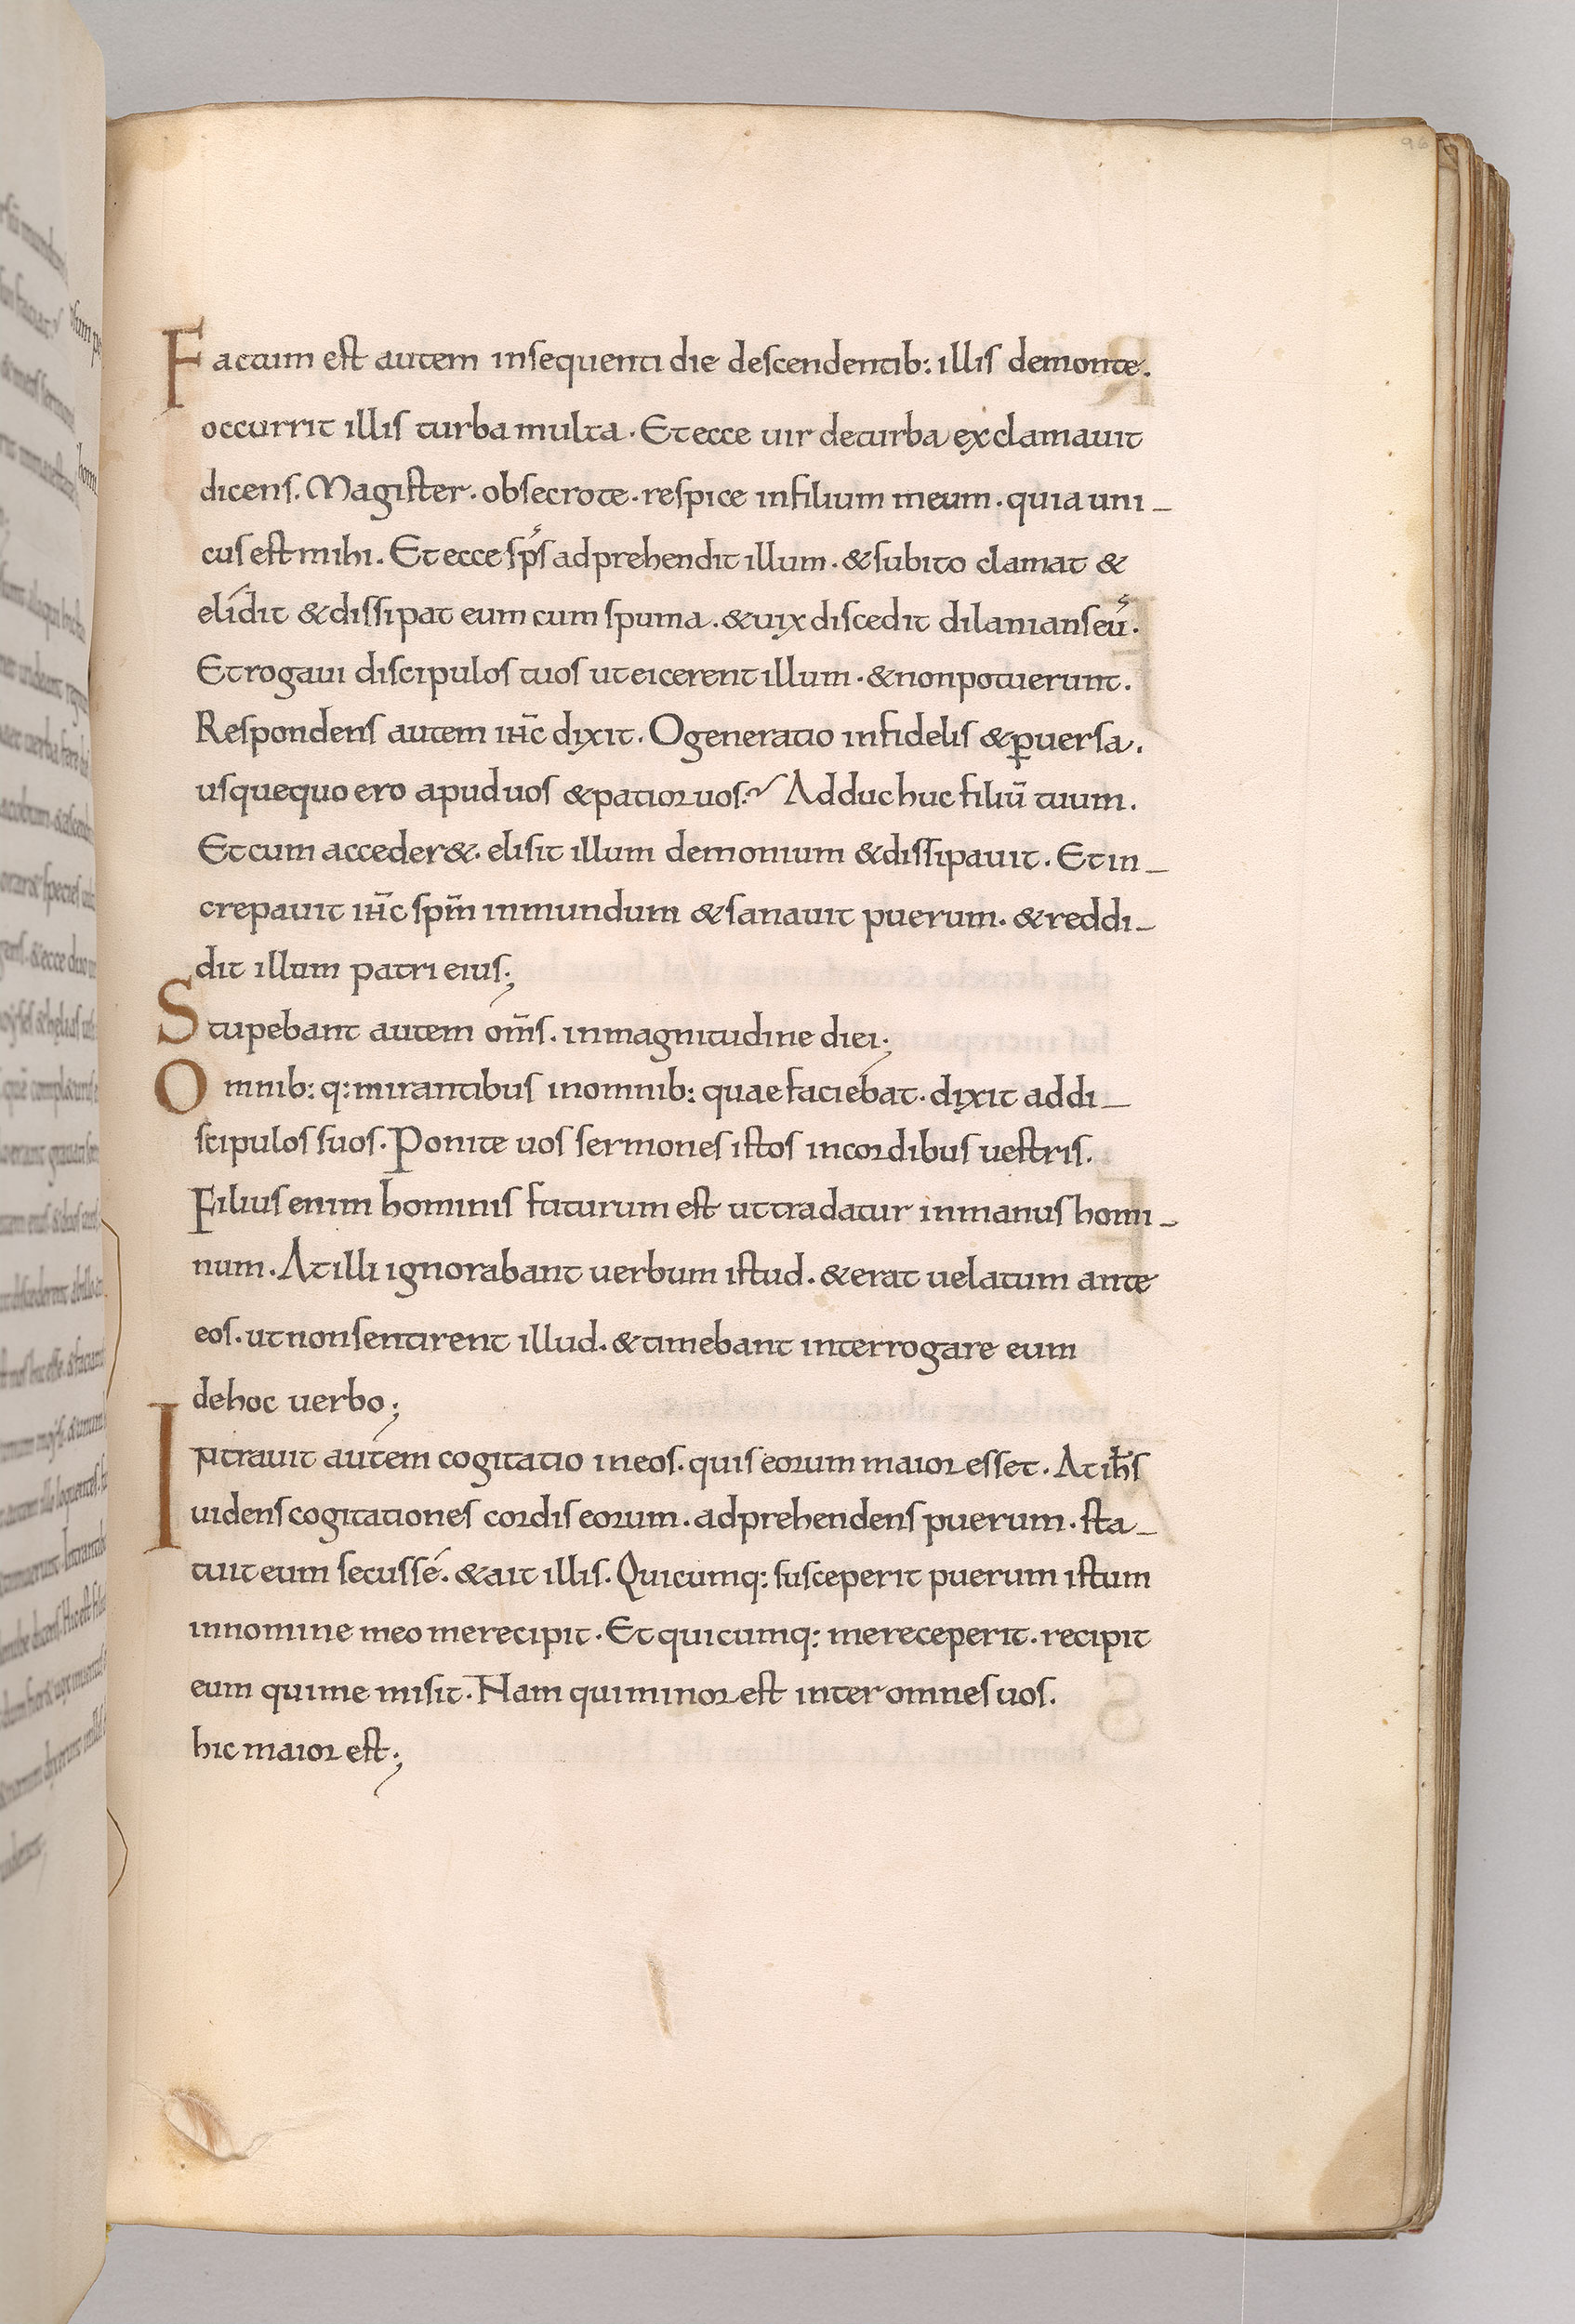 96
Factum est autem insequenti die descendentib: illis demonte.
occurrit illis turba multa. Et ecce uir deturba exclamauit
dicens. Magister. obsecrote. respice infilium meum. quia uni-
cus est mihi. Et ecce sp̅s adprehendit illum. & subito clamat &
elídit & dissipat eum cum spuma. & uix discedit dilanians eū.
Et rogaui discipulos tuos ut eicerent illum. & non potuerunt.
Respondens autem ihc̅ dixit. O generatio infidelis & ꝑuersa.
usquequo ero apud uos & patior uos? Adduc huc filiū tuum.
Et cum acceder&. elisit illum demonium & dissipauit. Et in-
crepauit ihc̅ spm̅ inmundum & sanauit puerum. & reddi-
dit illum patri eius;
Stupebant autem om̅s. inmagnitudine diei;
Omnib: q: mirantibus inomnib: quae faciebat. dixit addi-
scipulos suos. Ponite uos sermones istos incordibus uestris.
Filius enim hominis futurum est ut tradatur inmanus homi-
num. At illi ignorabant uerbum istud. & erat uelatum ante
eos. ut non sentirent illud. & timebant interrogare eum
dehoc uerbo;
Intrauit autem cogitatio ineos. quis eorum maior esset. At ih̅s
uidens cogitationes cordis eorum. adprehendens puerum. sta-
tuit eum secus sé. & ait illis. Quicumq: susceperit puerum istum
innomine meo me recipit. Et quicumq: me receperit. recipit
eum qui me misit. Nam qui minor est inter omnes uos.
hic maior est;